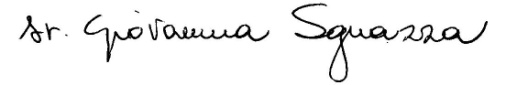 sr. Giovanna Sguazza